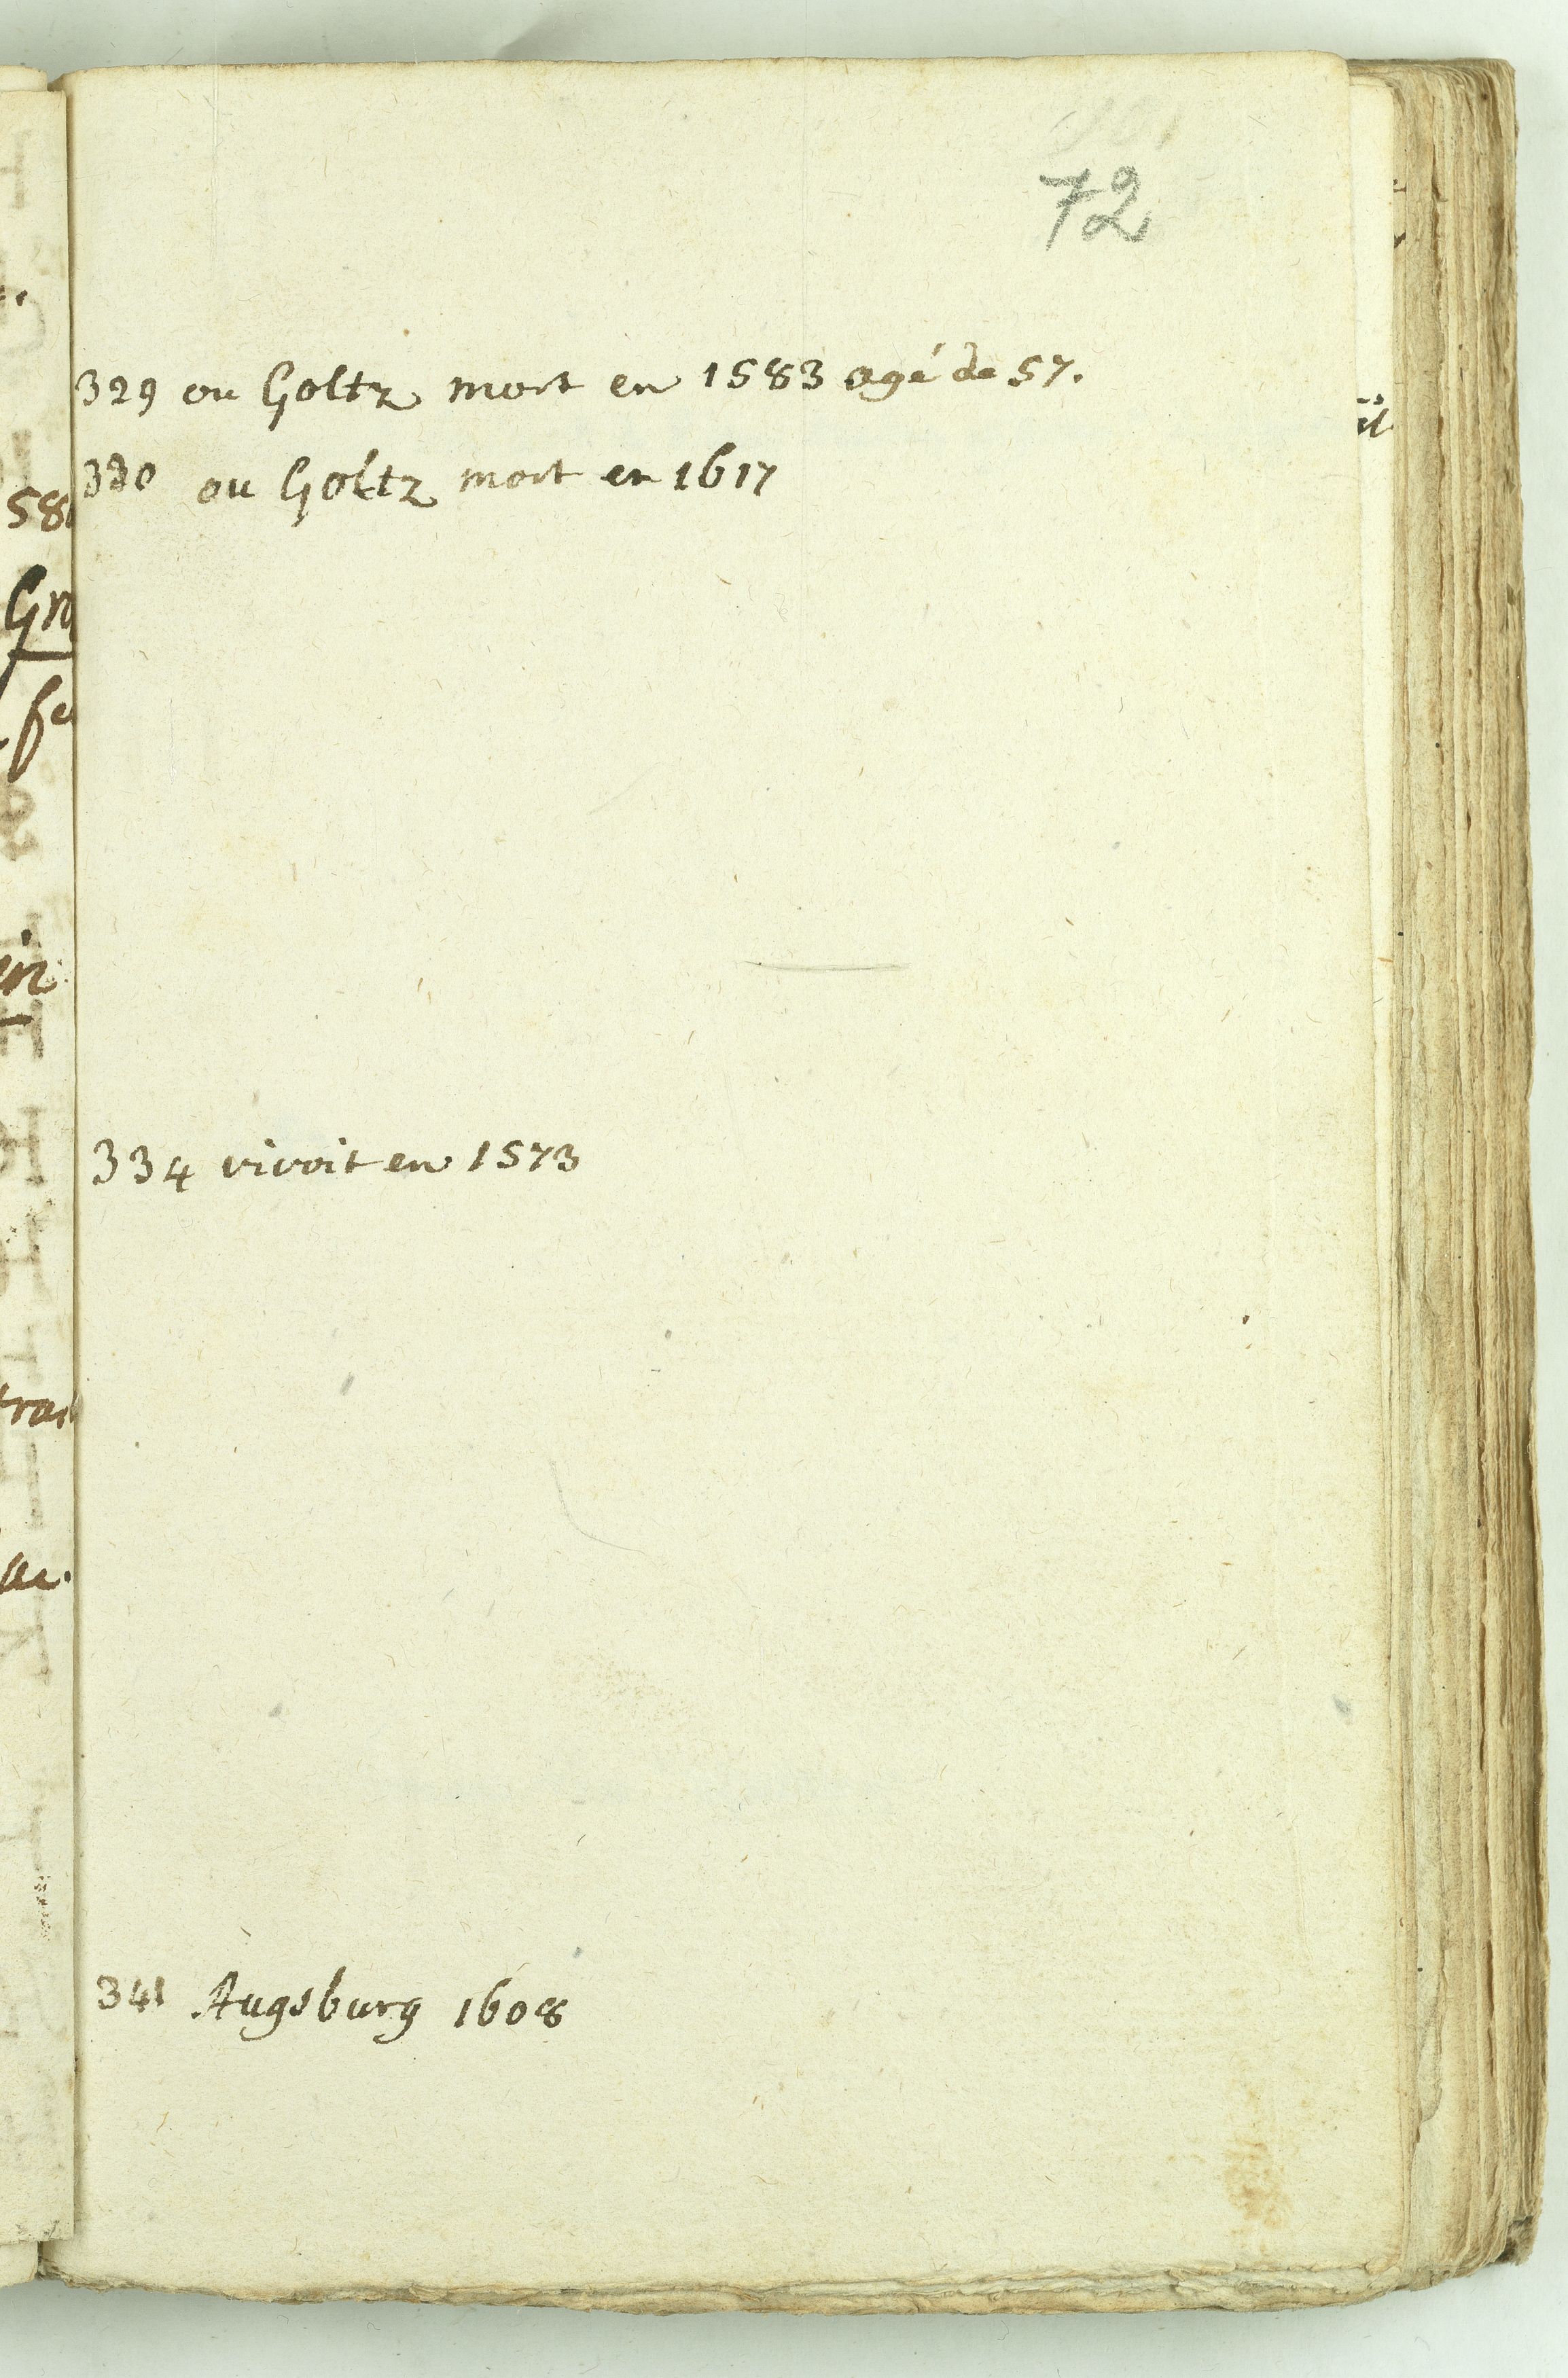 72
329 ou Goltz mort en 1583 agé de 57.
330 ou Goltz mort en 1617
334 vivoit en 1573
341 Augsburg 1608